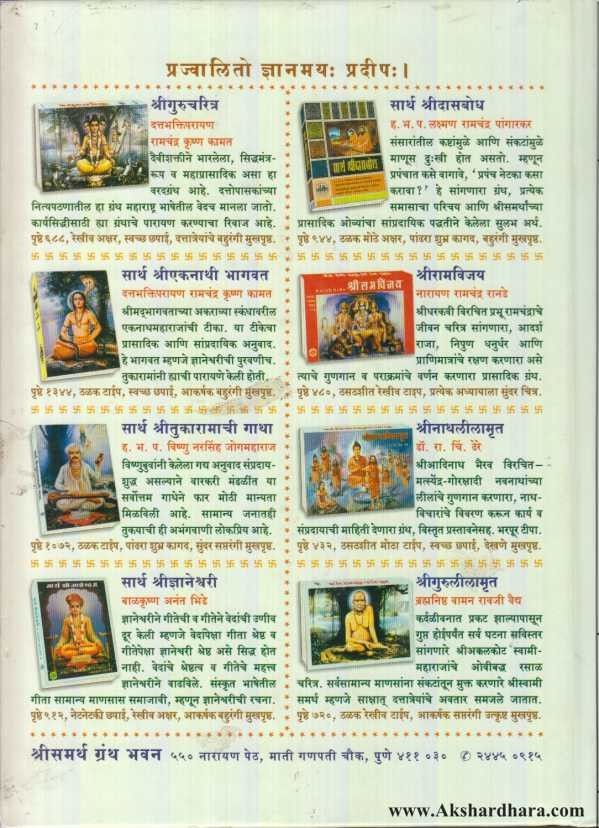 प्रज्वालितो ज्ञानमयः प्रदीपः।
श्रीगुरुचरित्र
दत्तभक्तिपरायण
रामचंद्र कृष्ण कामत
दैवीशक्तीने भारलेला, सिद्धमंत्र-
रूप व महाप्रासादिक असा हा
वरदग्रंथ आहे. दत्तोपासकांच्या
नित्यपठणातील हा ग्रंथ महाराष्ट्र भाषेतील वेदच मानला जातो.
कार्यसिद्धीसाठी ह्या ग्रंथाचे पारायण करण्याचा रिवाज आहे.
पृष्ठे ६८८, रेखीव अक्षर, स्वच्छ छपाई, दत्तात्रेयांचे बहुरंगी मुखपृष्ठ.
सार्थ श्रीएकनाथी भागवत
दत्तभक्तिपरायण रामचंद्र कृष्ण कामत
श्रीमद्भागवताच्या अकराव्या स्कंधावरील
एकनाथमहाराजांची टीका. या टीकेचा
प्रासादिक आणि सांप्रदायिक अनुवाद.
हे भागवत म्हणजे ज्ञानेश्वरीची पुरवणीच.
तुकारामांनी ह्याची पारायणे केली होती.
पृष्ठे १३४४, ठळक टाईप, स्वच्छ छपाई, आकर्षक बहुरंगी मुखपृष्ठ.
सार्थ श्रीतुकारामाची गाथा
ह. भ. प. विष्णु नरसिंह जोगमहाराज
विष्णुबुवांनी केलेला गद्य अनुवाद संप्रदाय-
शुद्ध असल्याने वारकरी मंडळीत या
सर्वोत्तम गाथेने फार मोठी मान्यता
मिळविली आहे. सामान्य जनताही
तुकयाची ही अभंगवाणी लोकप्रिय आहे.
पृष्ठे १०७२, ठळक टाईप, पांढरा शुभ्र कागद, सुंदर सप्तरंगी मुखपृष्ठ.
सार्थ श्रीज्ञानेश्वरी
बाळकृष्ण अनंत भिडे
ज्ञानेश्वरीने गीतेची व गीतेने वेदांची उणीव
दूर केली म्हणजे वेदांपेक्षा गीता श्रेष्ठ व
गीतेपेक्षा ज्ञानेश्वरी श्रेष्ठ असे सिद्ध होत
नाही. वेदांचे श्रेष्ठत्व व गीतेचे महत्त्व
ज्ञानेश्वरीने वाढविले. संस्कृत भाषेतील
गीता सामान्य माणसास समजावी, म्हणून ज्ञानेश्वरीची रचना.
पृष्ठे ९१२, नेटनेटकी छपाई, रेखीव अक्षर, आकर्षक बहुरंगी मुखपृष्ठ.
सार्थ श्रीदासबोध
ह. भ. प. लक्ष्मण रामचंद्र पांगारकर
संसारांतील कष्टांमुळे आणि संकटांमुळे
माणूस दुःखी होत असतो. म्हणून
प्रपंचात कसे वागावे, ‘प्रपंच नेटका कसा
करावा?’ हे सांगणारा ग्रंथ, प्रत्येक
समासाचा परिचय आणि श्रीसमर्थांच्या
प्रासादिक ओव्यांचा सांप्रदायिक पद्धतीने केलेला सुलभ अर्थ.
पृष्ठे ९४४, ठळक मोठे अक्षर, पांढरा शुभ्र कागद, बहुरंगी मुखपृष्ठ.
सार्थ श्रीदासबोध
श्रीरामविजय
नारायण रामचंद्र रानडे
श्रीधरकवी विरचित प्रभू रामचंद्राचे
जीवन चरित्र सांगणारा, आदर्श
राजा, निपुण धनुर्धर आणि
प्राणिमात्रांचे रक्षण करणारा असे
त्याचे गुणगान व पराक्रमांचे वर्णन करणारा प्रासादिक ग्रंथ.
पृष्ठे ४८०, ठसठशीत रेखीव टाइप, प्रत्येक अध्यायाला सुंदर चित्र.
श्रीरामविजय
श्रीनाथलीलामृत
डॉ. रा. चिं. ढेरे
श्रीआदिनाथ भैरव विरचित-
मत्स्येंद्र-गोरक्षादी नवनाथांच्या
लीलांचे गुणगान करणारा, नाथ-
विचारांचे विवरण करून कार्य व
संप्रदायाची माहिती देणारा ग्रंथ, विस्तृत प्रस्तावनेसह. भरपूर टीपा.
पृष्ठे ४३२, ठसठशीत मोठा टाईप, स्वच्छ छपाई, देखणे मुखपृष्ठ.
श्रीगुरुलीलामृत
ब्रह्मनिष्ठ वामन रावजी वैद्य
कर्दळीवनात प्रकट झाल्यापासून
गुप्त होईपर्यंत सर्व घटना सविस्तर
सांगणारे श्रीअक्कलकोट स्वामी-
महाराजांचे ओवीबद्ध रसाळ
चरित्र. सर्वसामान्य माणसांना संकटांतून मुक्त करणारे श्रीस्वामी
समर्थ म्हणजे साक्षात् दत्तात्रेयांचे अवतार समजले जातात.
पृष्ठे ७२०, ठळक रेखीव टाईप, आकर्षक सप्तरंगी उत्कृष्ट मुखपृष्ठ.
श्रीसमर्थ ग्रंथ भवन ५५० नारायण पेठ, माती गणपती चौक, पुणे ४११ ०३० ✆ २४४५ ०९१५
www.Akshardhara.com